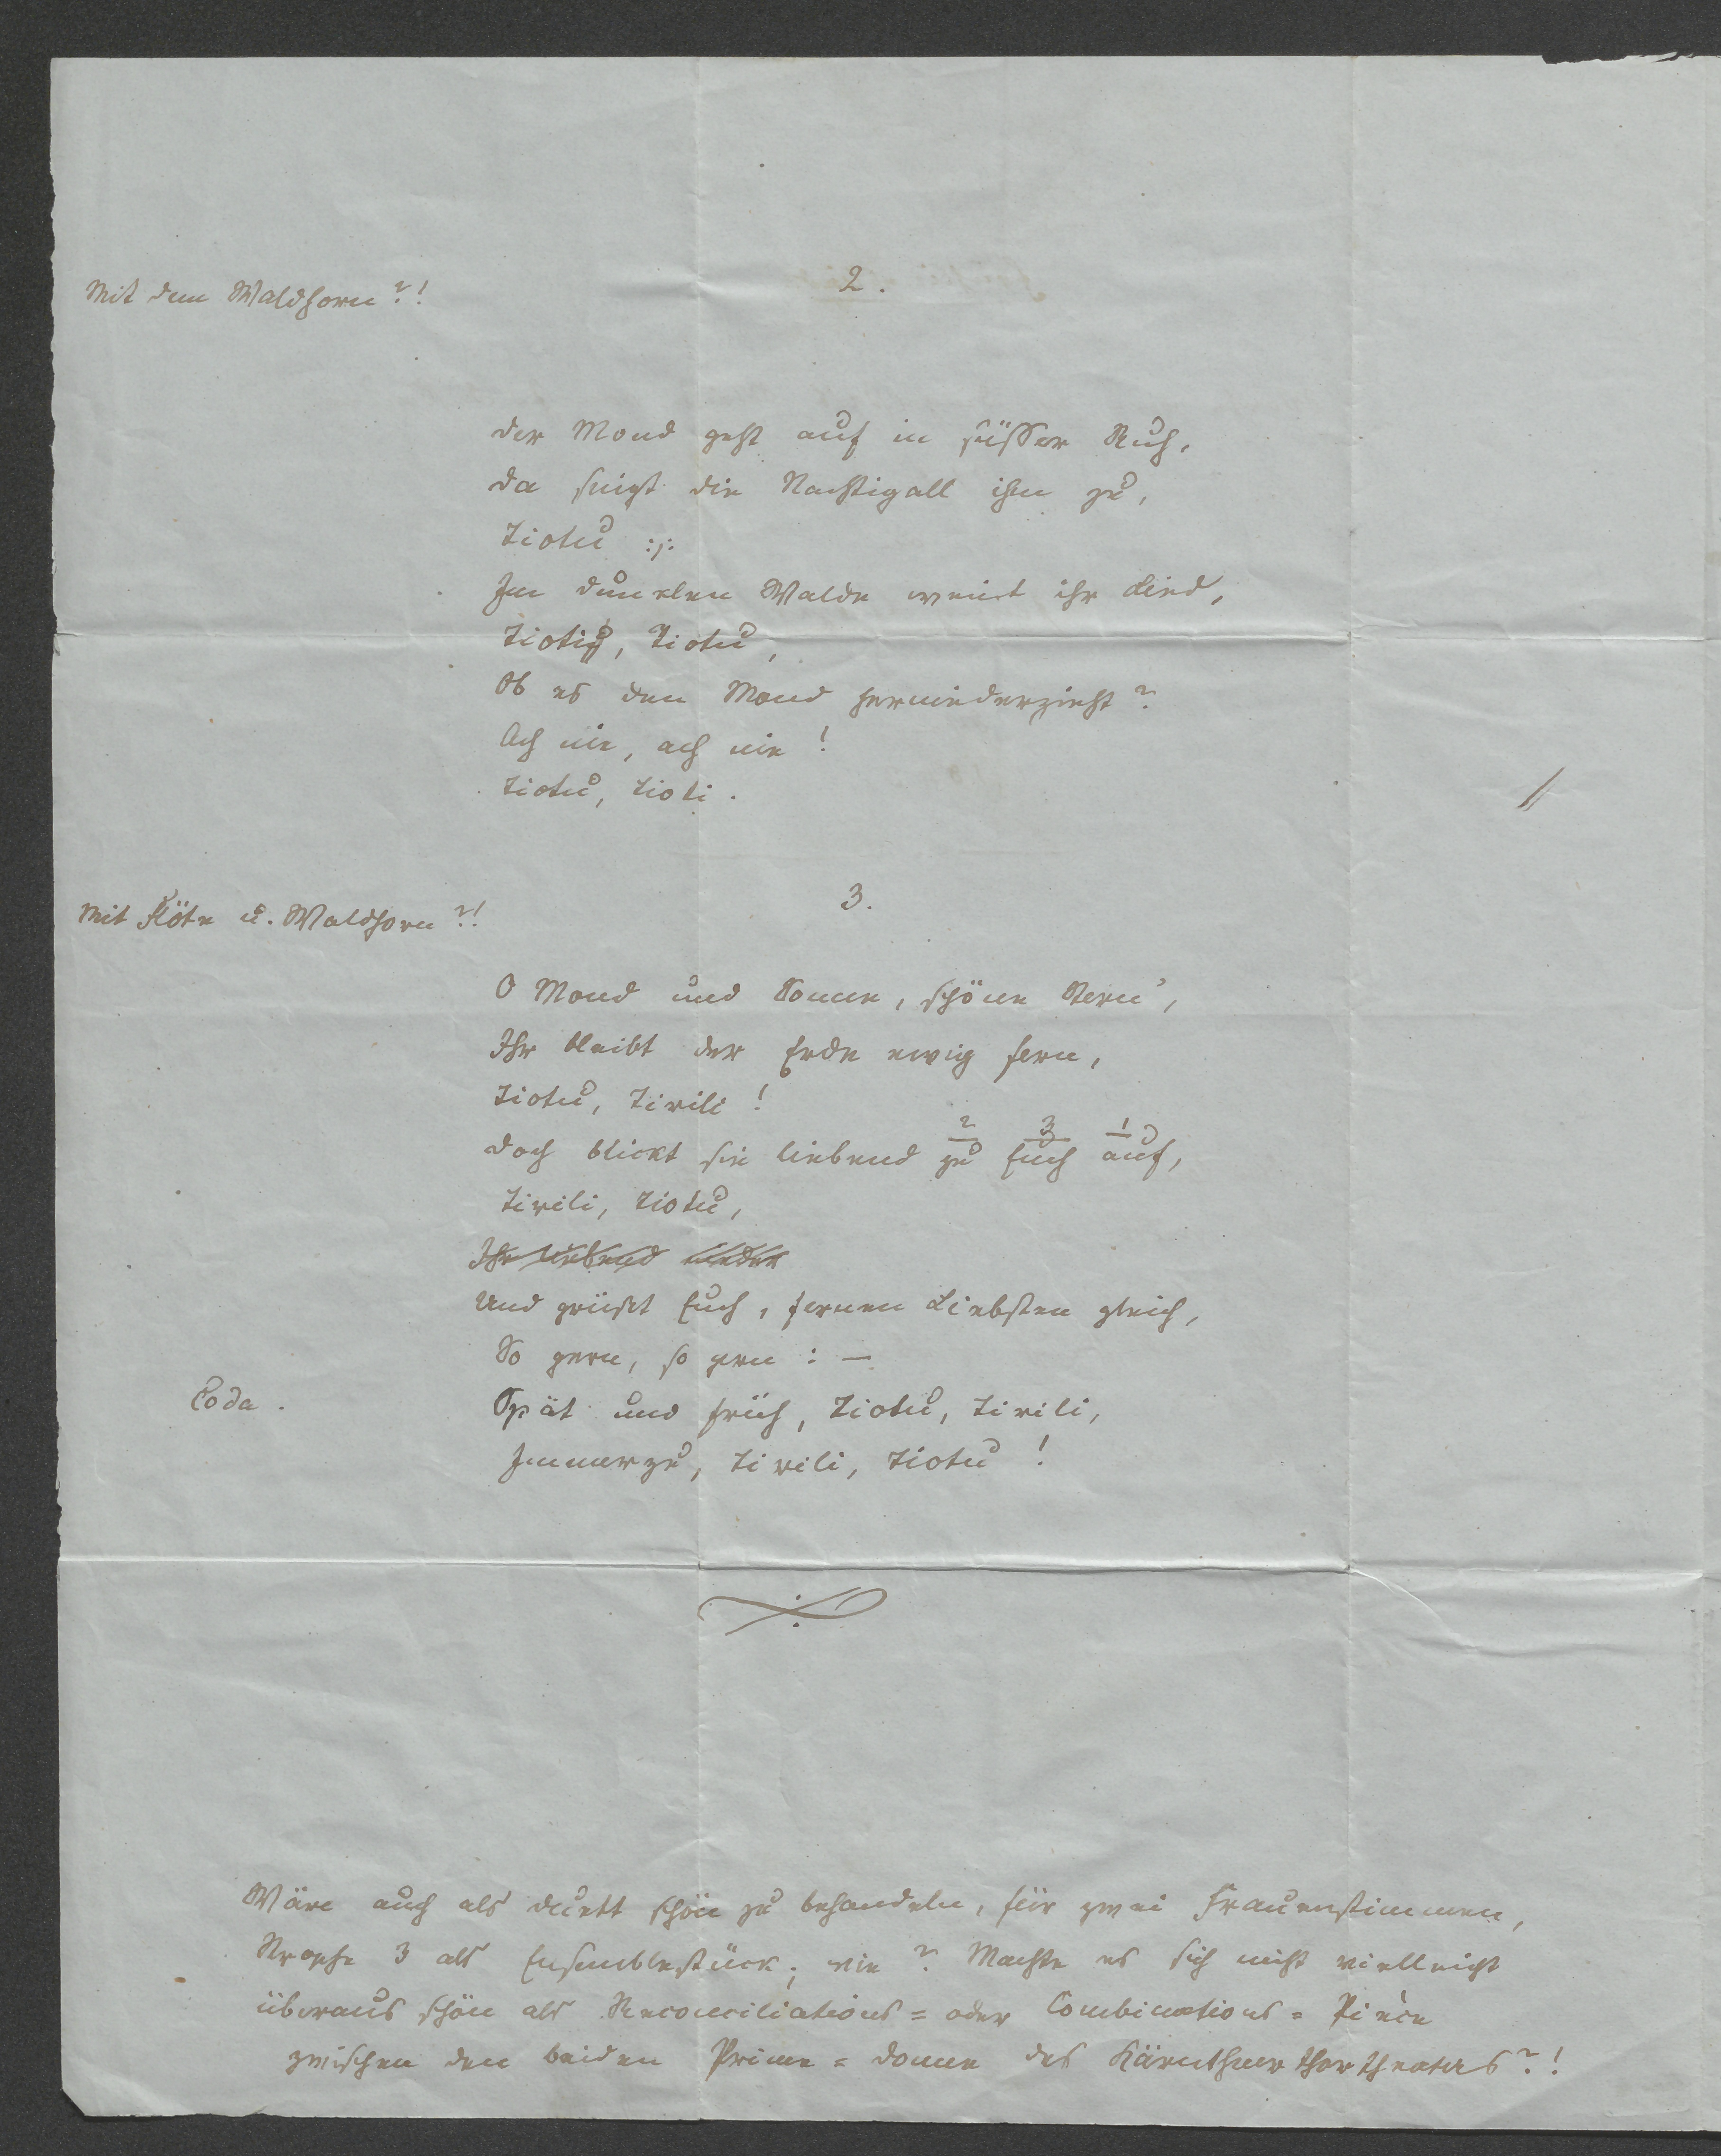 Mit dem Waldhorn?!
2.
der Mond geht auf in süsser Ruh,
da singt die Nachtigall ihm zu,
Tiotu :/:
Im dunklen Walde weint ihr Lied,
Tiotu, Tiotu,
Ob es den Mond herniederzieht?
Ach nie, ach nie!
Tiotu, tioti.
Mit Flöte u. Waldhorn?!
3.
O Mond und Sonne, schöne Stern',
Ihr bleibt der Erde ewig fern,
Tiotu, Tirili!
2 3 1
doch blickt sie liebend zu Euch auf,
Tirili, tiotu,
Ihr liebend
Und grüßt Euch, fernen Liebsten gleich,
So gern, so gern: —
Coda.
Spät und früh, Tiotu, tirili,
Immerzu, tirili, tiotu!
Wäre auch als duett schön zu behandeln, für zwei Frauenstimmen,
Strophe 3 als Ensemblestück; wie? Machte es sich nicht vielleicht
überaus schön als Reconciliations= oder Combinations= Pièce
zwischen den beiden Prime=donne des Kärnthnerthortheaters?!